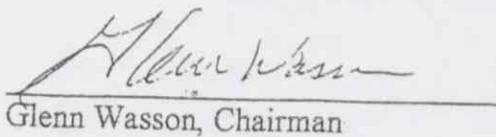 Glenn Wasson
Glenn Wasson, Chairman